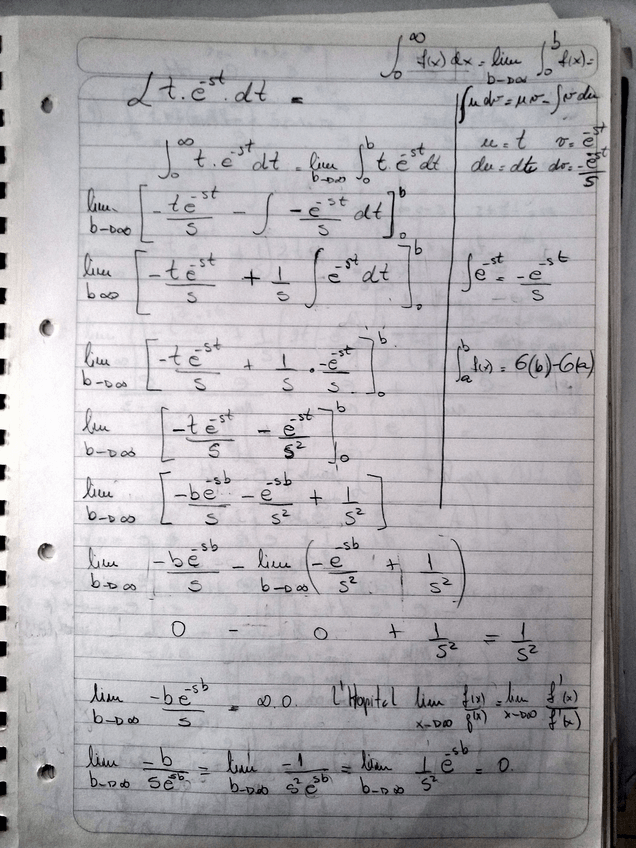 ∫₀^∞ f(x) dx = lim_{b→∞} ∫₀^b f(x) =
ℒ t · e^{-st} · dt =
∫u dv = uv - ∫v du
∫₀^∞ t · e^{-st} dt = lim_{b→∞} ∫₀^b t e^{-st} dt
u = t v = e^{-st}
du = dt dv = -e^{-st}/s
lim_{b→∞} [ -te^{-st}/s - ∫ -e^{-st}/s dt ]₀^b
lim_{b∞} [ -te^{-st}/s + 1/s ∫ e^{-st} dt ]₀^b
∫e^{-st} = -e^{-st}/s
lim_{b→∞} [ -te^{-st}/s + 1/s · -e^{-st}/s ]₀^b
∫ₐ^b f(x) = G(b) - G(a)
lim_{b→∞} [ -te^{-st}/s - e^{-st}/s² ]₀^b
lim_{b→∞} [ -be^{-sb}/s - e^{-sb}/s² + 1/s² ]
lim_{b→∞} -be^{-sb}/s - lim_{b→∞} ( -e^{-sb}/s² + 1/s² )
0 - 0 + 1/s² = 1/s²
lim_{b→∞} -be^{-sb}/s = ∞.0. L'Hopital lim_{x→∞} f(x)/f(x) = lim_{x→∞} f'(x)/f'(x)
lim_{b→∞} -b/se^{sb} = lim_{b→∞} -1/s²e^{sb} = lim_{b→∞} 1/s² e^{-sb} = 0.